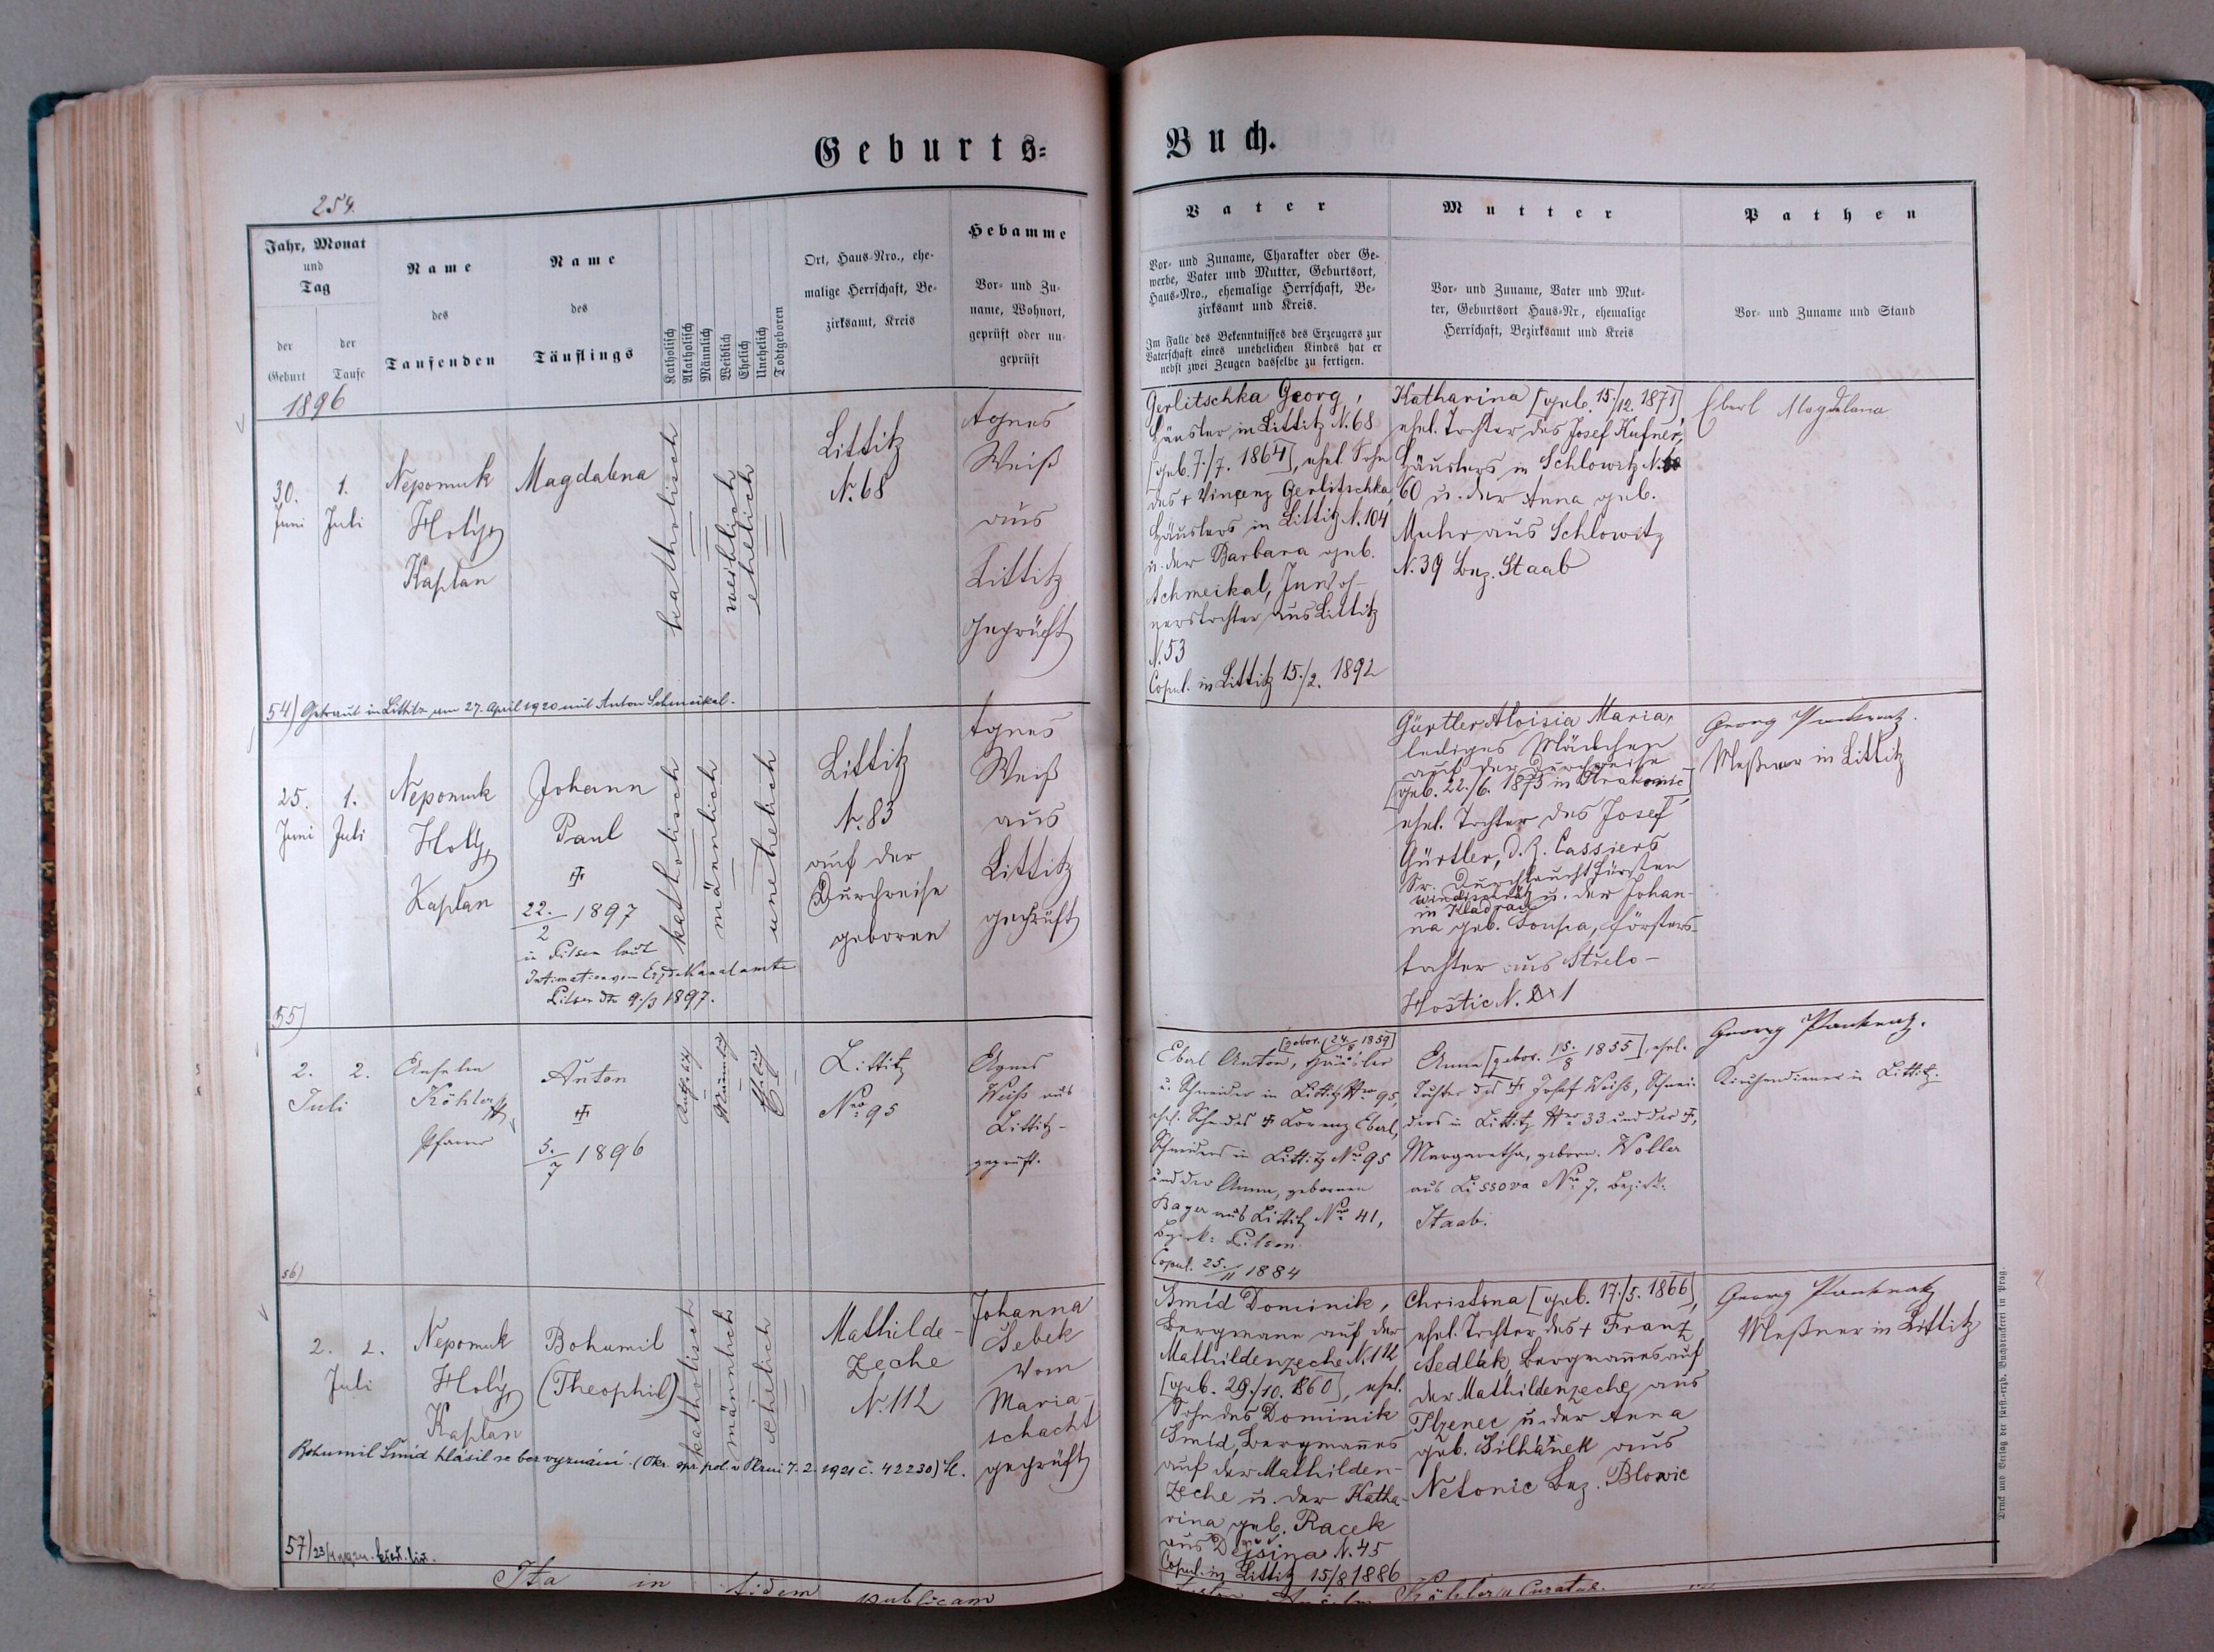 Geburts-
Buch.
254.
Jahr, Monat
und
Tag
der
Geburt
der
Taufe
Name
des
Taufenden
Name
des
Täuflings
Katholisch
Akatholisch
Männlich
Weiblich
Ehelich
Unehelich
Todtgeboren
Ort, Haus-Nro., ehe-
malige Herrschaft, Be-
zirksamt, Kreis
Hebamme
Vor- und Zu-
name, Wohnort,
geprüft oder un-
geprüft
Vater
Vor- und Zuname, Charakter oder Ge-
werbe, Vater und Mutter, Geburtsort,
Haus-Nro., ehemalige Herrschaft, Be-
zirksamt und Kreis.
Im Falle des Bekenntnisses des Erzeugers zur
Vaterschaft eines unehelichen Kindes hat er
nebst zwei Zeugen dasselbe zu fertigen.
Mutter
Vor- und Zuname, Vater und Mut-
ter, Geburtsort Haus-Nr., ehemalige
Herrschaft, Bezirksamt und Kreis
Pathen
Vor- und Zuname und Stand
1896
30.
Juni
1.
Juli
Nepomuk
Holý,
Kaplan
Magdalena
katholisch
weiblich
ehelich
Littitz
N. 68
Agnes
Weiß
aus
Littitz
geprüft
Gerlitschka Georg,
Häusler in Littitz N. 68
[geb. 7./7. 1864], ehel. Sohn
des + Vinzenz Gerlitschka,
Häuslers in Littitz N. 104
u. der Barbara geb.
Schmeikal, Inwoh-
nerstochter aus Littitz
N. 53
Copul. in Littitz 15./2. 1892
Katharina [geb. 15./12. 1871],
ehel. Tochter des Josef Kufner,
Häuslers in Schlowitz N.
60 u. der Anna geb.
Muhr aus Schlowitz
N. 39 Bez. Staab
Eberl Magdalena
54) Getraut in Littitz am 27. April 1920 mit Anton Schmeikal.
25.
Juni
1.
Juli
Nepomuk
Holý,
Kaplan
Johann
Paul
22./2 1897
in Pilsen laut
Intimation vom Erzdekanalamte
Pilsen dto 9./3 1897.
katholisch
männlich
unehelich
Littitz
N. 83
auf der
Durchreise
geboren
Agnes
Weiß
aus
Littitz
geprüft
Gürtler Aloisia Maria,
lediges Mädchen
auf der Durchreise
[geb. 22./6. 1875 in]
ehel. Tochter des Josef
Gürtler, d. Z. Cassiers
Sr. Durchlaucht Fürsten
u. der Johan-
in Kladrau
na geb. Försters-
tochter aus Střelo-
Hoštic N. 1
Georg Pankratz.
Meßner in Littitz
55)
2.
Juli
2.
Anselm
Köhler
Pfarrer
Anton
5./7 1896
Littitz
Nro 95
Agnes
Weiß aus
Littitz-
geprüft.
[gebor. 24./8 1859]
Eberl Anton, Häusler
u. Schneider in Littitz Nro 95,
ehel. Sohn des Lorenz Eberl,
Schneiders in Littitz Nro 95
und der Anna, gebornen
Bayer aus Littitz Nro 41,
Bezirk: Pilsen.
Copul. 25./11 1884
Anna [gebor. 15./8 1855], ehel.
Tochter des Josef Weiß, Schnei-
ders in Littitz Nro 33 und der
Margaretha, geborn. Woller
aus Lissova Nro 7, Bezirk:
Staab.
Georg Pankratz.
Kirchendiener in Littitz.
56)
2.
Juli
2.
Nepomuk
Holý,
Kaplan
Bohumil
(Theophil)
katholisch
männlich
ehelich
Mathilde-
zeche
N. 112
Johanna
Šebek
vom
Maria-
schacht
geprüft
Bohumil Šmíd hlásil se bez vyznání. (Okr. spr. pol. v Plzni 7. 2. 1921 č. 42230)
Šmíd Dominik,
Bergmann auf der
Mathildenzeche N. 112
[geb. 29./10. 1860], ehel.
Sohn des Dominik
Šmíd, Bergmannes
auf der Mathilden-
zeche u. der Katha-
rina geb. Racek
aus Dejšina N. 45
Copul. in Littitz 15/8 1886
Christina [geb. 17./5. 1866],
ehel. Tochter des + Franz
Sedlak, Bergmannes auf
der Mathildenzeche aus
u. der Anna
geb. Šilhánek aus
Netonic Bez. Blowic
Georg Pankratz
Meßner in Littitz
57)
Ita in fidem publicam
Köhler Curatus.
Druck und Verlag der fürst.-erzb. Buchdruckerei in Prag.